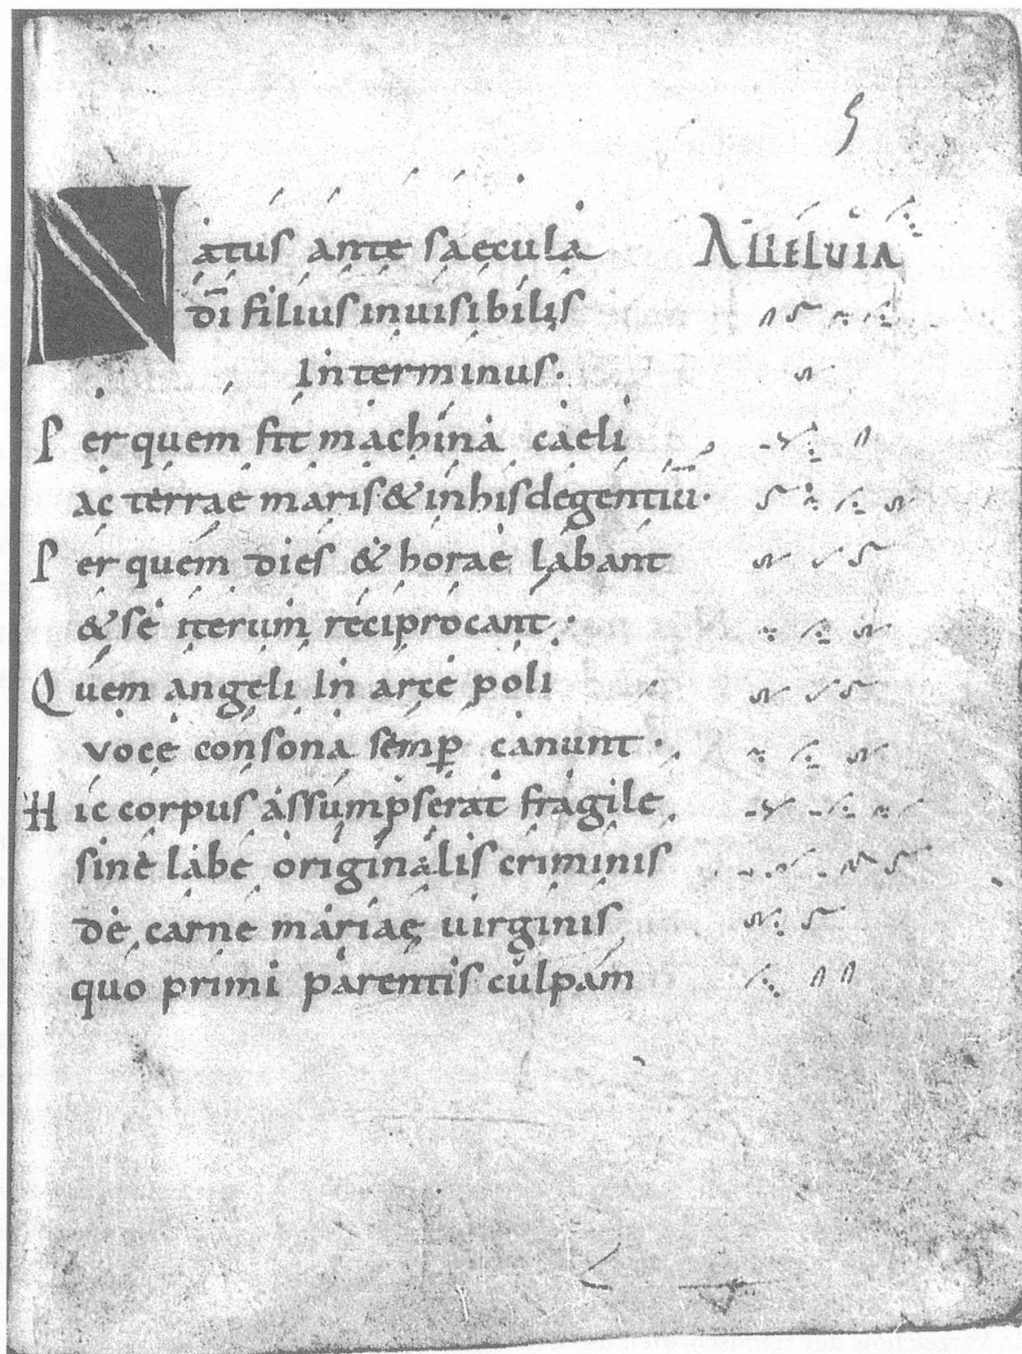 5
Natus ante saecula Alleluia
di̅ filius inuisibilis
Interminus.
Per quem fit machina caeli
ac terrae maris & in his degentiu̅.
Per quem dies & horae labant
& se iterum reciprocant.
Quem angeli In arce poli
voce consona semp̲ canunt.
Hic corpus assumpserat fragile
sine labe originalis criminis
de carne mariae uirginis
quo primi parentis culpam